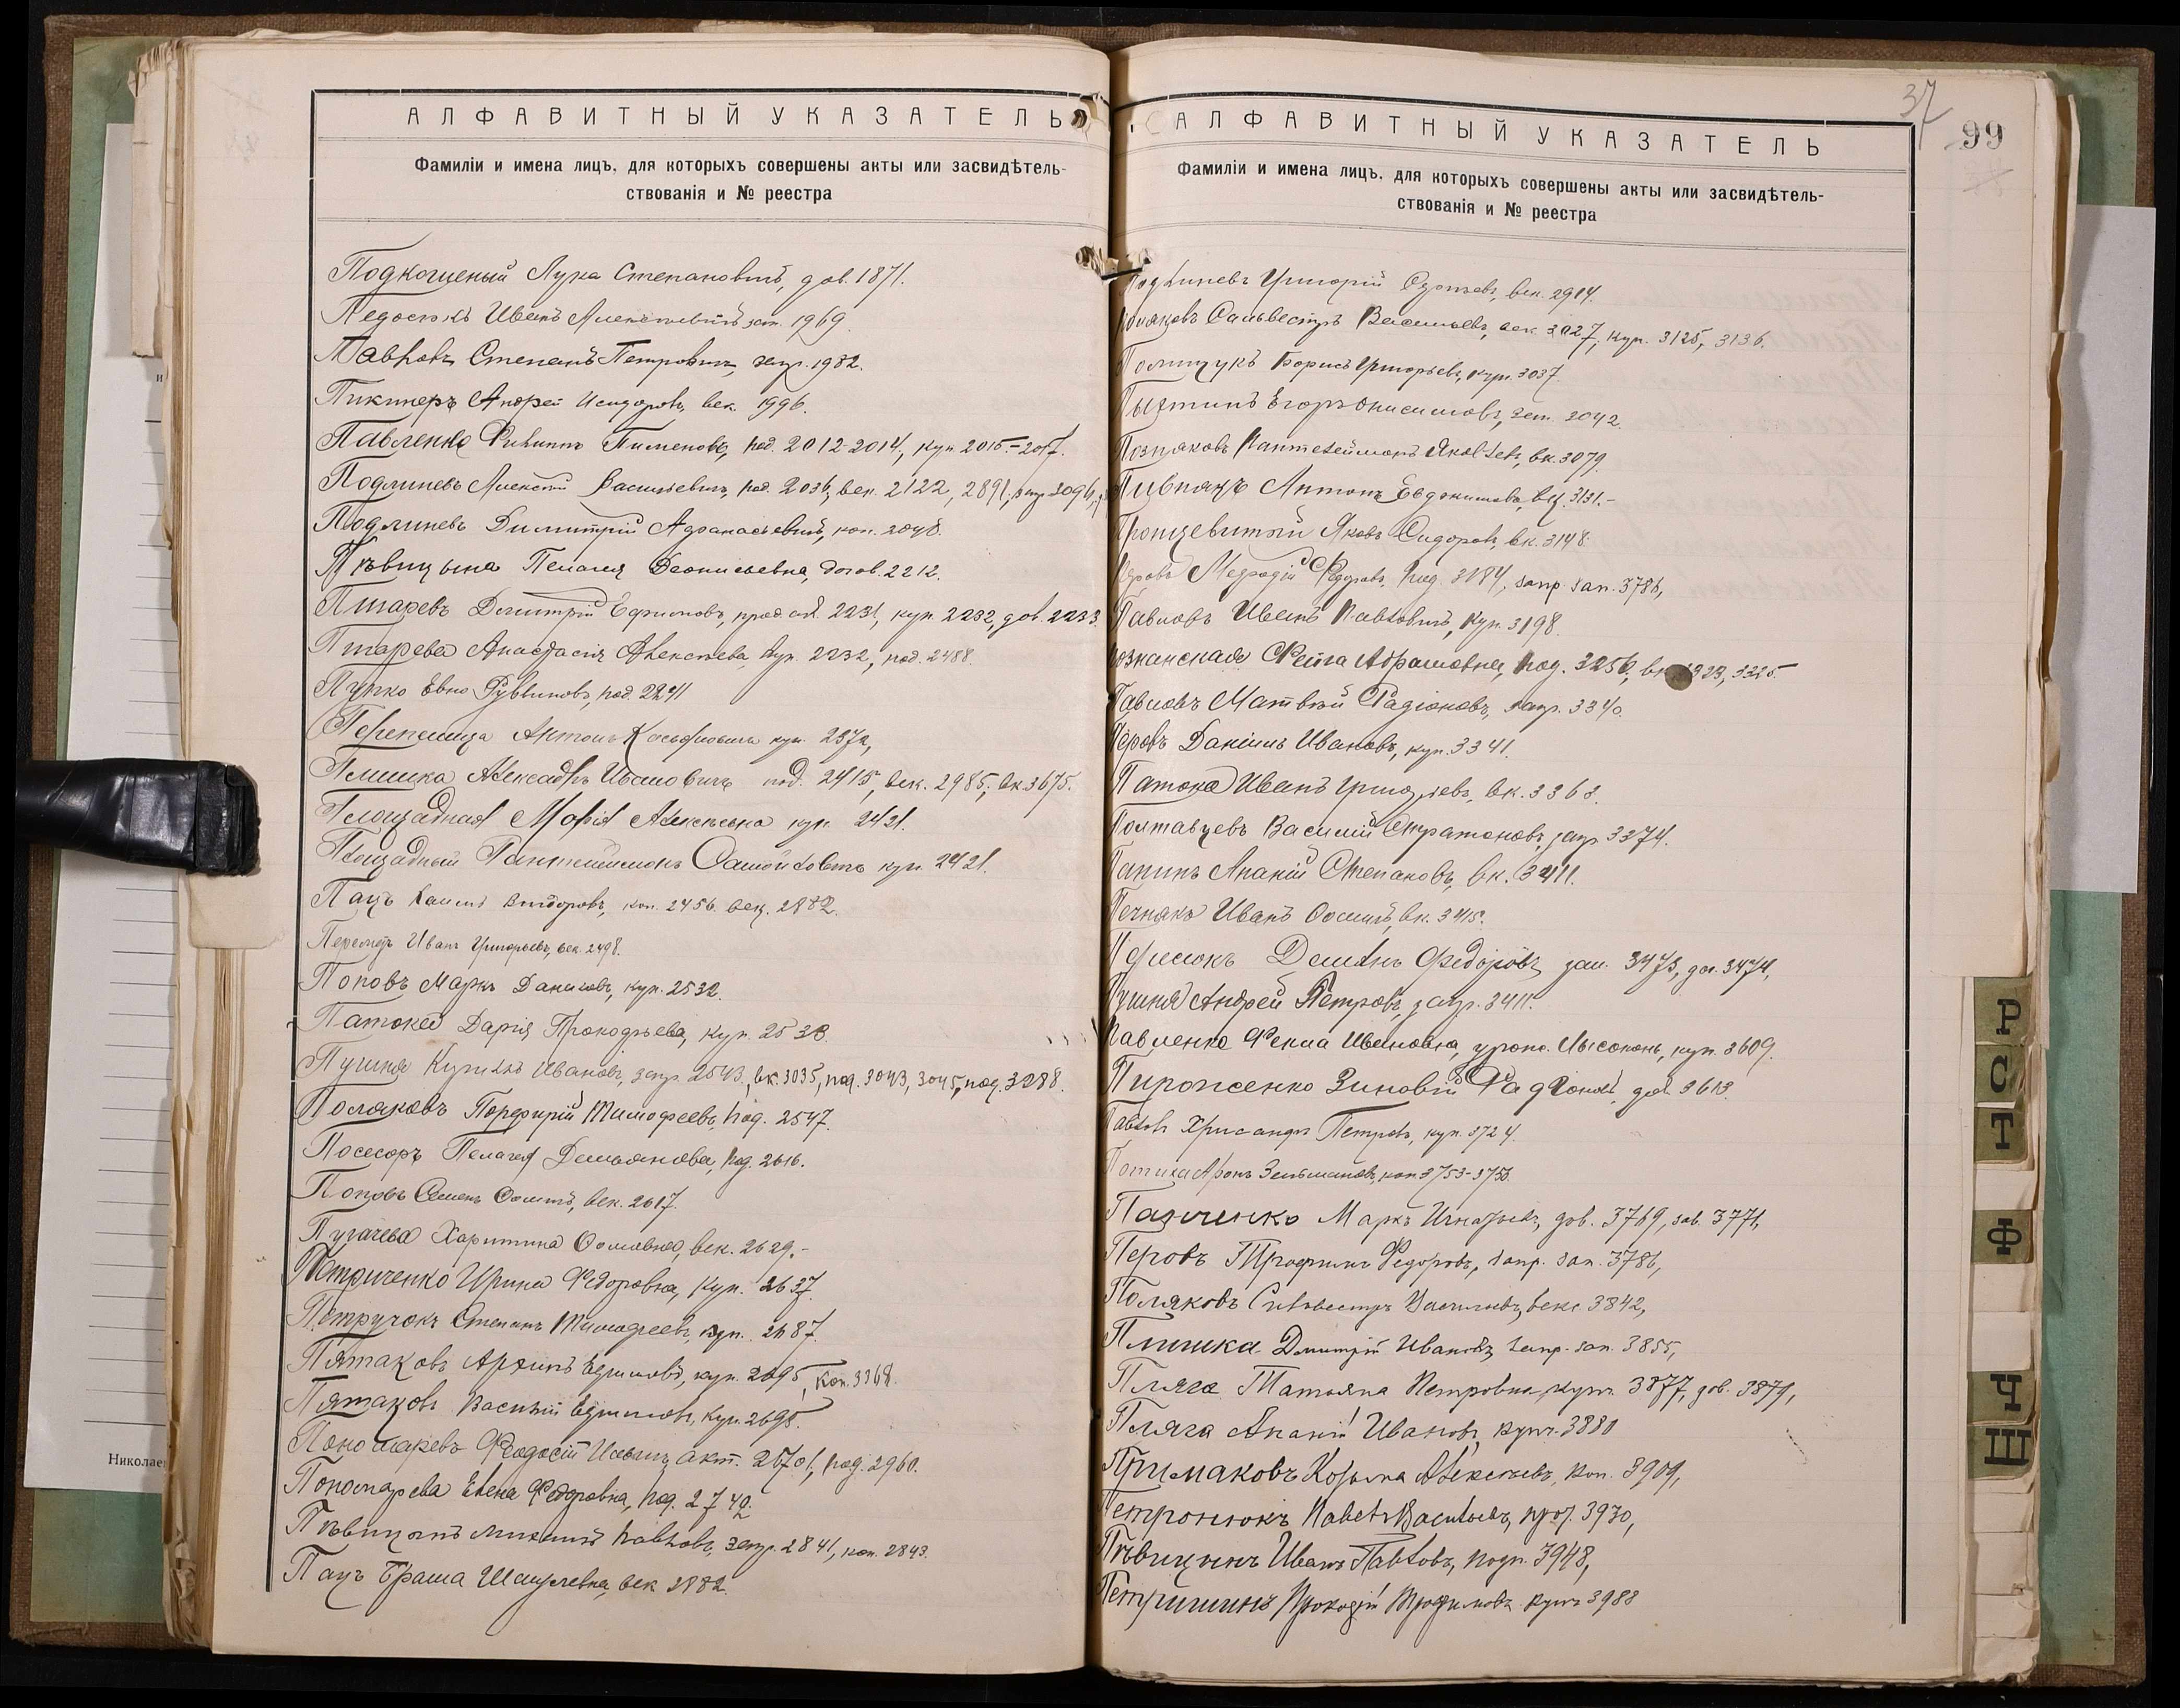 АЛФАВИТНЫЙ УКАЗАТЕЛЬ
Фамиліи и имена лицъ, для которыхъ совершены акты или засвидѣтель-
ствованія и № реестра
Подкоценый Лука Степановичъ, дов. 1871.
Иванъ 1969.
Павловъ Степанъ Петровичъ, запр. 1982.
Пикинеръ Андрей Исидоровъ, век. 1996.
Павленко Филиппъ Пименовъ, под. 2012-2014, куп. 2015-2017.
Подлиневъ Алексѣй Васильевичъ, под. 2036, век. 2122, 2891, запр. 3096,
Подлиневъ Димитрій Афанасьевичъ, коп. 2048.
Пѣвицына Пелагея Деонисьевна, догов. 2212.
Писаревъ Димитрій Ефимовъ, 2231, куп. 2232, дов. 2233.
Писарева Анастасія Алексѣева, куп. 2232, под. 2488.
Пупко Евно Рувиновъ, под. 2241
Перепелица Антонъ куп. 2372,
Плишка Александръ Ивановичъ под. 2415, век. 2985, вк. 3675.
Площадная Марія Алексѣевна куп. 2421.
Площадный Пантелеймонъ Самойловичъ куп. 2421.
Пацъ коп. 2456. век. 2882.
Иванъ Григорьевъ, век. 2498.
Поповъ Маркъ Даниловъ, куп. 2532.
Патока Дарія Прокофьева, куп. 2538.
Пушня Ивановъ, запр. 2543, вк. 3035, под. 3043, 3045, под. 3288.
Поляковъ Порфирій Тимофеевъ, под. 2547.
Посесоръ Пелагея Демьянова, под. 2616.
Поповъ Семенъ век. 2617.
Пугачева Харитина век. 2629.-
Петриченко Ирина Федоровна, куп. 2637.
Петручокъ Степанъ Тимофеевъ, куп. 2687.
Пятаковъ Архипъ Ефимовъ, куп. 2695, коп. 3368.
Пятаковъ Василій Ефимовъ, куп. 2695.
Пономаревъ Феодосій акт. 2670/1, под. 2960.
Пономарева Елена Федоровна, под. 2740.
Пѣвицынъ Михаилъ Павловъ, запр. 2841, коп. 2843.
Пацъ Браша век. 2882.
37
99
АЛФАВИТНЫЙ УКАЗАТЕЛЬ
Фамиліи и имена лицъ, для которыхъ совершены акты или засвидѣтель-
ствованія и № реестра
Подлиневъ Григорій век. 2914.
Поляковъ Сильвестръ Васильевъ, век. 3027, куп. 3125, 3136.
Полищукъ Борисъ Григорьевъ, куп. 3037.
Пыхтинъ Егоръ Онисимовъ, 3042.
Позняковъ Пантелеймонъ Яковлевъ, вк. 3079.
Пивнякъ Антонъ Евдокимовъ, вк. 3131.-
Яковъ Сидоровъ, вк. 3148.
Перовъ Мефодій Федоровъ, под. 3184, запр. зап. 3786,
Павловъ Иванъ Павловичъ, куп. 3198.
Фейга Абрамовна, под. 3256, вк. 3323, 3325.
Павловъ Матвѣй Радіоновъ, запр. 3340.
Перовъ Даніилъ Ивановъ, куп. 3341.
Патока Иванъ Григорьевъ, вк. 3363.
Полтавцевъ Василій Стратоновъ, запр. 3374.
Папинъ Ананій Степановъ, вк. 3411.
Печнякъ Иванъ вк. 3415.
Демьянъ Федоровъ, зап. 3473, дов. 3474,
Пушня Андрей Петровъ, запр. 3411.
Павленко Фекла Ивановна, Лысоконь, куп. 3609.
Пироженко Зиновій Радіоновъ, дов. 3613.
Павловъ Хрисанфъ Петровъ, куп. 3724.
Потиха Аронъ Зельмановъ, коп. 3753-3758.
Панченко Маркъ Игнатьевъ, дов. 3769, зав. 3771,
Перовъ Трофимъ Федоровъ, запр. зап. 3786,
Поляковъ Сильвестръ Васильевъ, векс. 3842,
Плишка Дмитрій Ивановъ, запр. зап. 3855,
Пляга Татьяна Петровна, купч. 3877, дов. 3879,
Пляга Ананій Ивановъ, купч. 3880
Примаковъ Козьма Алексѣевъ, коп. 3909,
Петронюкъ Павелъ Васильевъ, прот. 3930,
Пѣвицынъ Иванъ Павловъ, подп. 3948,
Петришинъ Прокофій Трофимовъ купч. 3988
Р
С
Т
Ф
Ч
Ш
Николаев